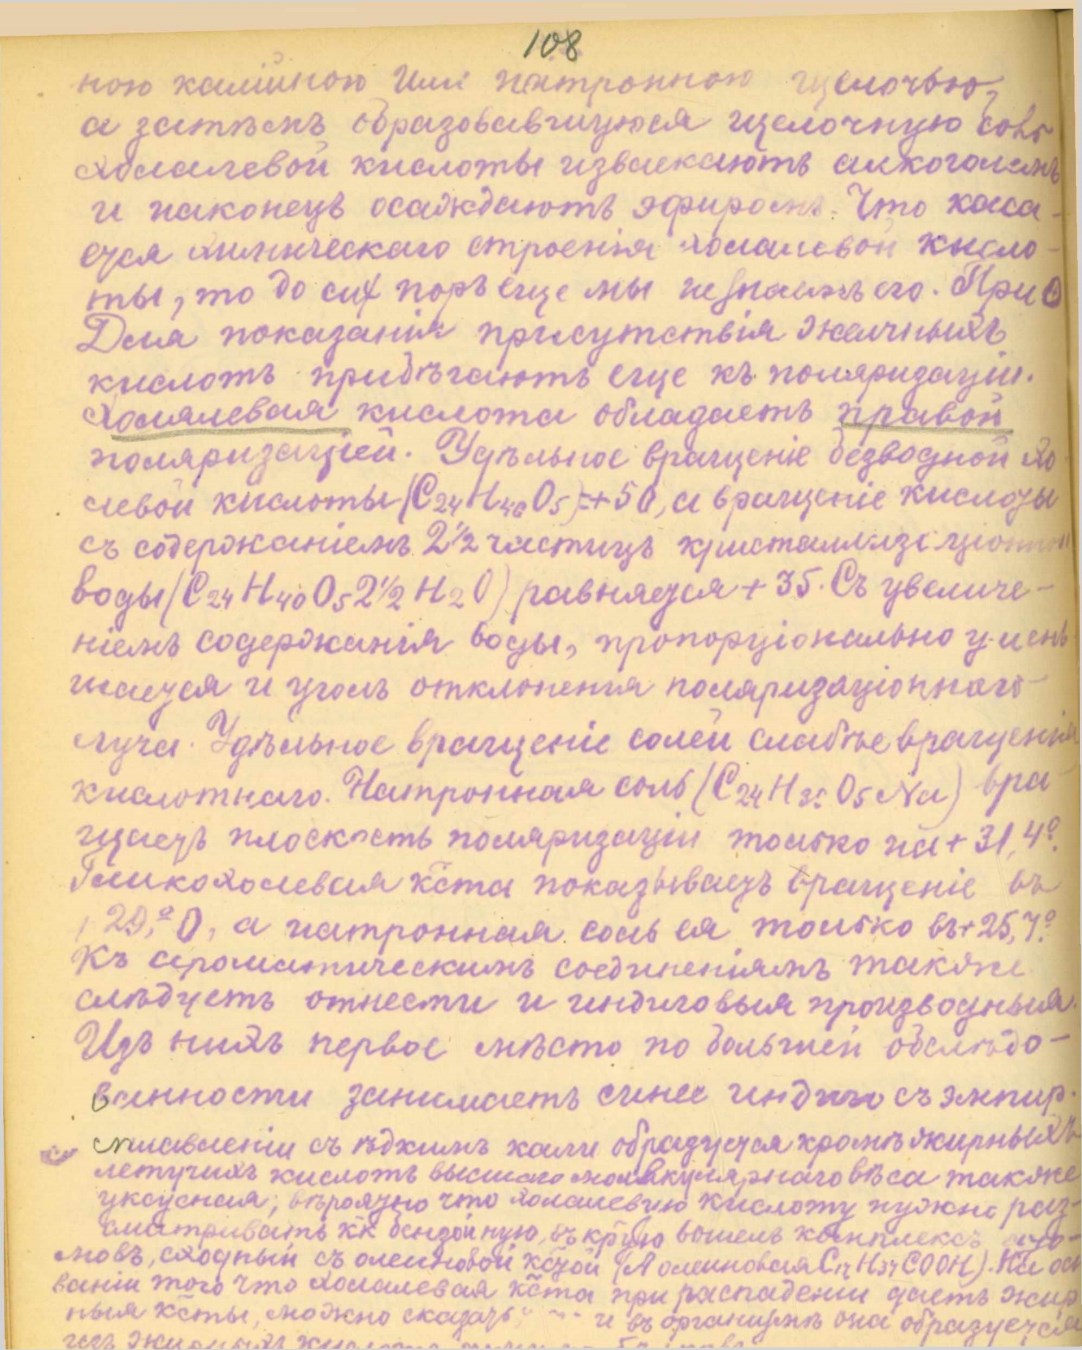 108
ною калійною или натронною щелочью,
а затѣмъ образовавшуюся щелочную соль
холалевой кислоты извлекаютъ алкоголемъ
и наконецъ осаждаютъ эфиромъ. Что каса-
ется химическаго строенія холалевой кисло-
ты, то до сих поръ еще мы не знаемъ его. При
Для показанія присутствія желчныхъ
кислотъ прибѣгаютъ еще къ поляризаціи.
Холялевая кислота обладаетъ правой
поляризаціей. Удѣльное вращеніе безводной хо
левой кислоты (C24H40O5)=+50, а вращеніе кислоты
съ содержаніемъ 2½ частицъ кристаллизаціонной
воды (C24H40O5 2½ H2O) равняется +35. Съ увеличе-
ніемъ содержанія воды, пропорціонально умень
шается и уголъ отклоненія поляризаціоннаго
луча. Удѣльное вращеніе солей слабѣе вращенія
кислотнаго. Натронная соль (C24H39O5Na) вра-
щаетъ плоскость поляризаціи только на +31,4°.
Гликохолевая кста показываетъ вращеніе въ
+29,°0, а натронная соль ея только въ +25,7°.
Къ ароматическимъ соединеніямъ также
слѣдуетъ отнести и индиговыя производныя.
Изъ нихъ первое мѣсто по большей обслѣдо-
ванности занимаетъ синее индиго съ эмпир.
сплавленіи съ ѣдкимъ кали образуется кромѣ жирныхъ
летучихъ кислотъ высшаго молекулярнаго вѣса также
уксусная; вѣроятно что холалевую кислоту нужно раз-
сматривать кк бензойную, въ крую вошелъ комплексъ
мовъ, сходный съ олеиновой кстой (А олеиновая C17H37COOH). На ос
ваніи того что холалевая кста при распаденіи даетъ жир
ныя ксты, можно сказать, и въ организмѣ она образуется
изъ жирныхъ кислотъ